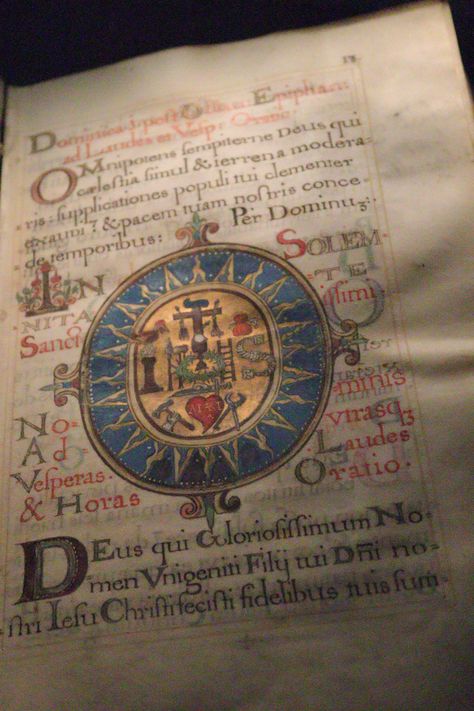 Dominica.j.post
ad Laudes et Vesp: Oratio
OMnipotens sempiterne Deus qui
cælestia simul & terrena modera-
ris: supplicationes populi tui clementer
exaudi & pacem tuam nostris conce-
de temporibus: Per Dominuʒ
IN SOLEM-
NITA TE
Sanct issimi
IHS
NO minis
Ad Vtrasqʒ
Vesperas Laudes
& Horas Oratio.
DEus qui Gloriosissimum No-
men Vnigeniti Filij tui Dñi no-
stri Iesu Christi fecisti fidelibus tuis sum-